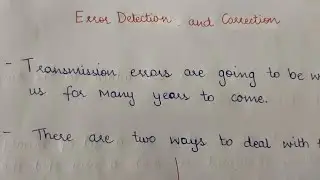 Error Detection and Correction
- Transmission errors are going to be
us for many years to come.
- There are two ways to deal with